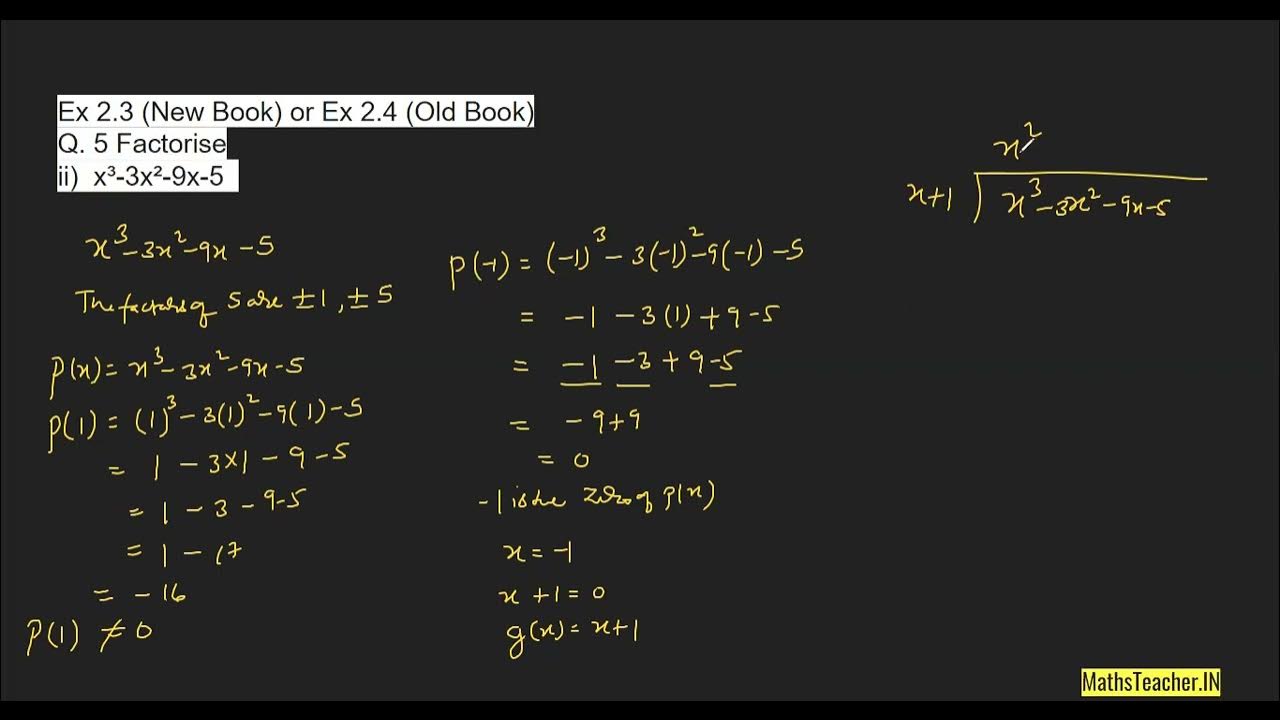 Ex 2.3 (New Book) or Ex 2.4 (Old Book)
Q. 5 Factorise
ii) x³-3x²-9x-5
x³-3x²-9x-5
The factors of 5 are ±1, ±5
p(x) = x³-3x²-9x-5
p(1) = (1)³-3(1)²-9(1)-5
= 1 - 3×1 - 9 - 5
= 1 - 3 - 9-5
= 1 - 17
= - 16
p(1) ≠ 0
p(-1) = (-1)³ - 3(-1)²-9(-1) -5
= -1 -3(1) + 9 -5
= -1 -3 + 9 -5
= -9+9
= 0
-1 is the zero of p(x)
x = -1
x + 1 = 0
g(x) = x+1
x²
x+1 ) x³-3x²-9x-5
MathsTeacher.IN